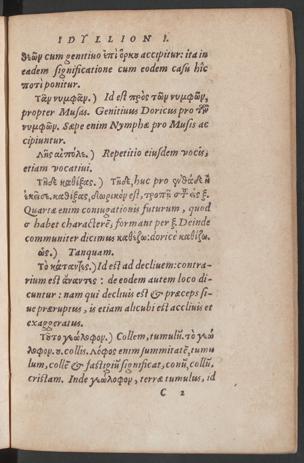 IDYLLION I.
θεῶν cum genitiuo ἐπὶ ὅρκου accipitur: ita in
eadem significatione cum eodem casu hîc
ποτὶ ponitur.
Τᾶν νυμφᾶν.) Id est πρὸς τῶν νυμφῶν,
propter Musas. Genitiuus Doricus pro τῶν
νυμφῶν. Sæpe enim Nymphæ pro Musis ac
cipiuntur.
Λῇς αἰπόλε.) Repetitio eiusdem vocis,
etiam vocatiui.
Τῇδε καθίξας.) Τῇδε, huc pro ἐνθάδε ἢ
καθίξας, δωρικόν est, τροπῇ τοῦ σ εἰς ξ.
Quartæ enim coniugationis futurum, quod
σ habet characterē, formant per ξ. Deinde
communiter dicimus καθίζω: doricè καθίζω.
ὡς.) Tanquam.
Τὸ κάταντες.) Id est ad decliuem: contra-
rium est ἄναντες : de eodem autem loco di-
cuntur : nam qui decliuis est & præceps si-
ue præruptus, is etiam alicubi est accliuis et
exaggeratus.
Τοῦτο γεώλοφον.) Collem, tumulū. τὸ γεώ
λοφον. n. collis. Λόφος enim summitatē, tumu
lum, collē & fastigiū significat, conū, collū,
cristam. Inde γεώλοφον, terræ tumulus, id
C 2